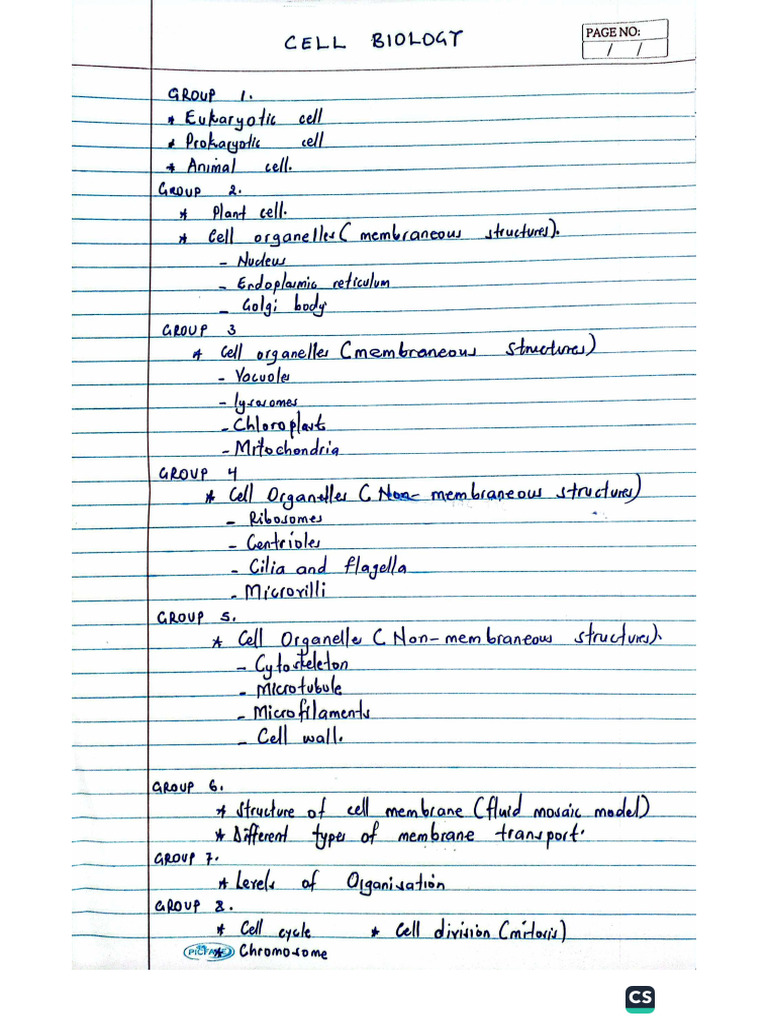 CELL BIOLOGY
PAGE NO:
/ /
GROUP 1.
* Eukaryotic cell
* Prokaryotic cell
* Animal cell.
GROUP 2.
* Plant cell.
* Cell organelles ( membraneous structures).
- Nucleus
- Endoplasmic reticulum
- Golgi body
GROUP 3
* Cell organelles (membraneous structures)
- Vacuoles
- lysosomes
- Chloroplasts
- Mitochondria
GROUP 4
* Cell Organelles ( Non- membraneous structures)
- Ribosomes
- Centrioles
- Cilia and flagella
- Microvilli
GROUP 5.
* Cell Organelle ( Non-membraneous structures).
- Cytoskeleton
- Microtubule
- Microfilaments
- Cell wall.
GROUP 6.
* Structure of cell membrane (fluid mosaic model)
* Different types of membrane transport.
GROUP 7.
* Levels of Organisation
GROUP 8.
* Cell cycle * Cell division (mitosis)
* Chromosome
CS